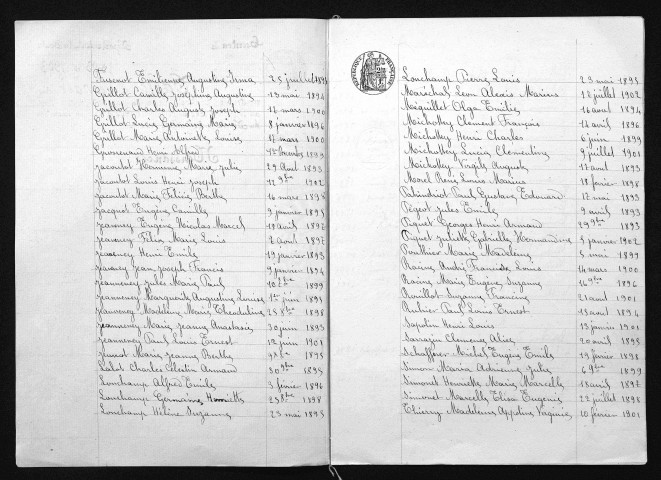 Emilienne Augustine Irma 25 juillet 1895
Guillot Camille Joséphine Augustine 13 mai 1894
Guillot Charles Auguste Joseph 12 mars 1900
Guillot Lucie Germaine Marie 8 janvier 1896
Guillot Marie Antoinette Louise 17 mars 1900
Henri Alfred 1899
Jacoutot Hermine Marie Julie 29 Août 1893
Jacoutot Louis Henri Joseph 1902
Jacoutot Marie Félicie Berthe 16 mars 1898
Jacquot Eugène Camille 9 janvier 1895
Jeanney Eugène Nicolas Marcel 19 avril 1892
Jeanney Félix Marie Louis 2 août 1897
Jeanney Henri Emile 19 janvier 1893
Jeanney Jean Joseph Francis 9 janvier 1894
Jeannerey Jules Marie Paul 10 8bre 1899
Jeannerey Marguerite Augustine Louise 1er juin 1895
Jeannerey Madeleine Marie Théodoline 25 8bre 1898
Jeannerey Marie Jeanne Anastasie 30 juin 1893
Jeannerey Paul Louis Ernest 12 juin 1901
Marie Jeanne Berthe 1895
Charles Célestin Armand 30 9bre 1895
Lonchamp Alfred Emile 3 février 1896
Lonchamp Germaine Henriette 23 8bre 1898
Lonchamp Hélène Suzanne 23 mai 1895
REPUBLIQUE FRANÇAISE
Lonchamp Pierre Louis 23 mai 1895
Maréchal Léon Alexis Marius 12 juillet 1902
Meiguillet Olga Emilie 16 août 1894
Michotey Clément François 14 avril 1896
Michotey Henri Charles 6 juin 1899
Michotey Lucien Clémentine 9 juillet 1901
Michotey Virgile Auguste 17 août 1893
Morel René Louis Marius 18 février 1898
Paul Gustave Edouard 12 mai 1893
Pegeot Jules Emile 9 avril 1893
Piquet Georges Henri Armand 29 9bre 1893
Piquet Juliette Gabrielle Hermandine 4 janvier 1902
Pouthier Marie Madeleine 5 mai 1899
André Francisde Louis 14 mars 1900
Marie Eugénie Suzanne 14 9bre 1896
Rouillot Suzanne Francine 21 août 1901
Paul Louis Ernest 13 août 1894
Sapolin Henri Louis 13 février 1901
Sarrazin Clémence Alice 20 avril 1895
Schaffner Michel Eugène Emile 19 février 1898
Simon Maria Adrienne Julie 6 9bre 1899
Simonet Henriette Marie Marcelle 18 avril 1897
Simonet Marcelle Elisa Eugénie 22 juillet 1898
Thierry Madeleine Appoline Virginie 20 février 1901